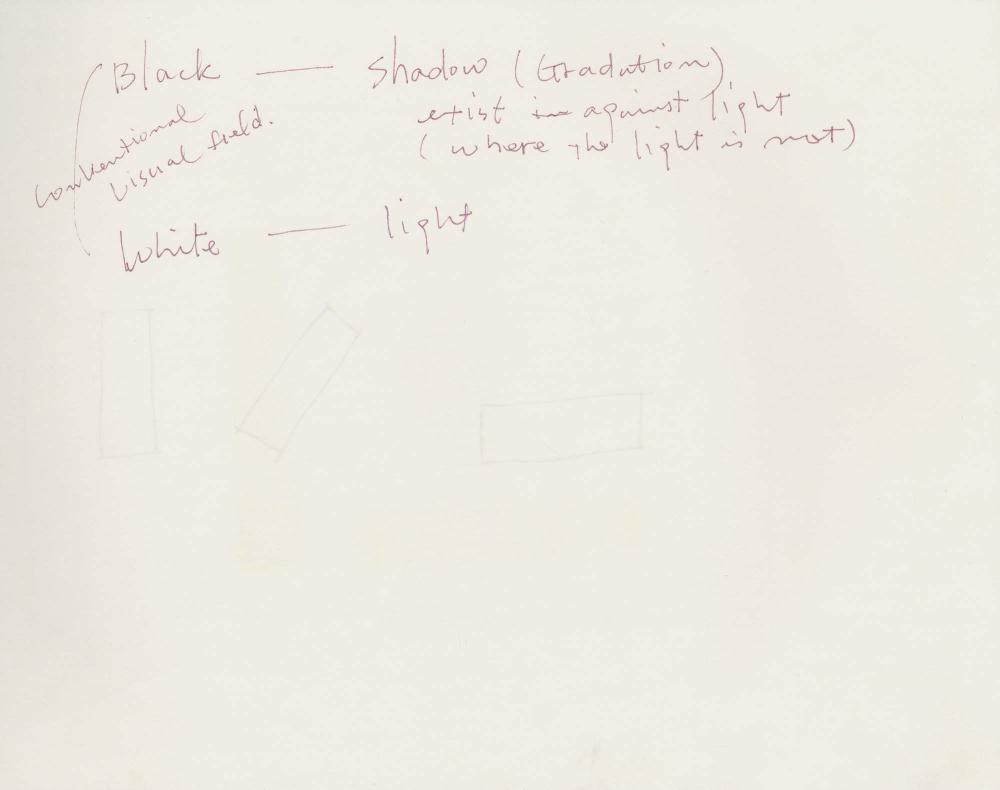 Black — Shadow (Gradation)
exist in against light
(where the light is not)
conventional
visual field.
White — light